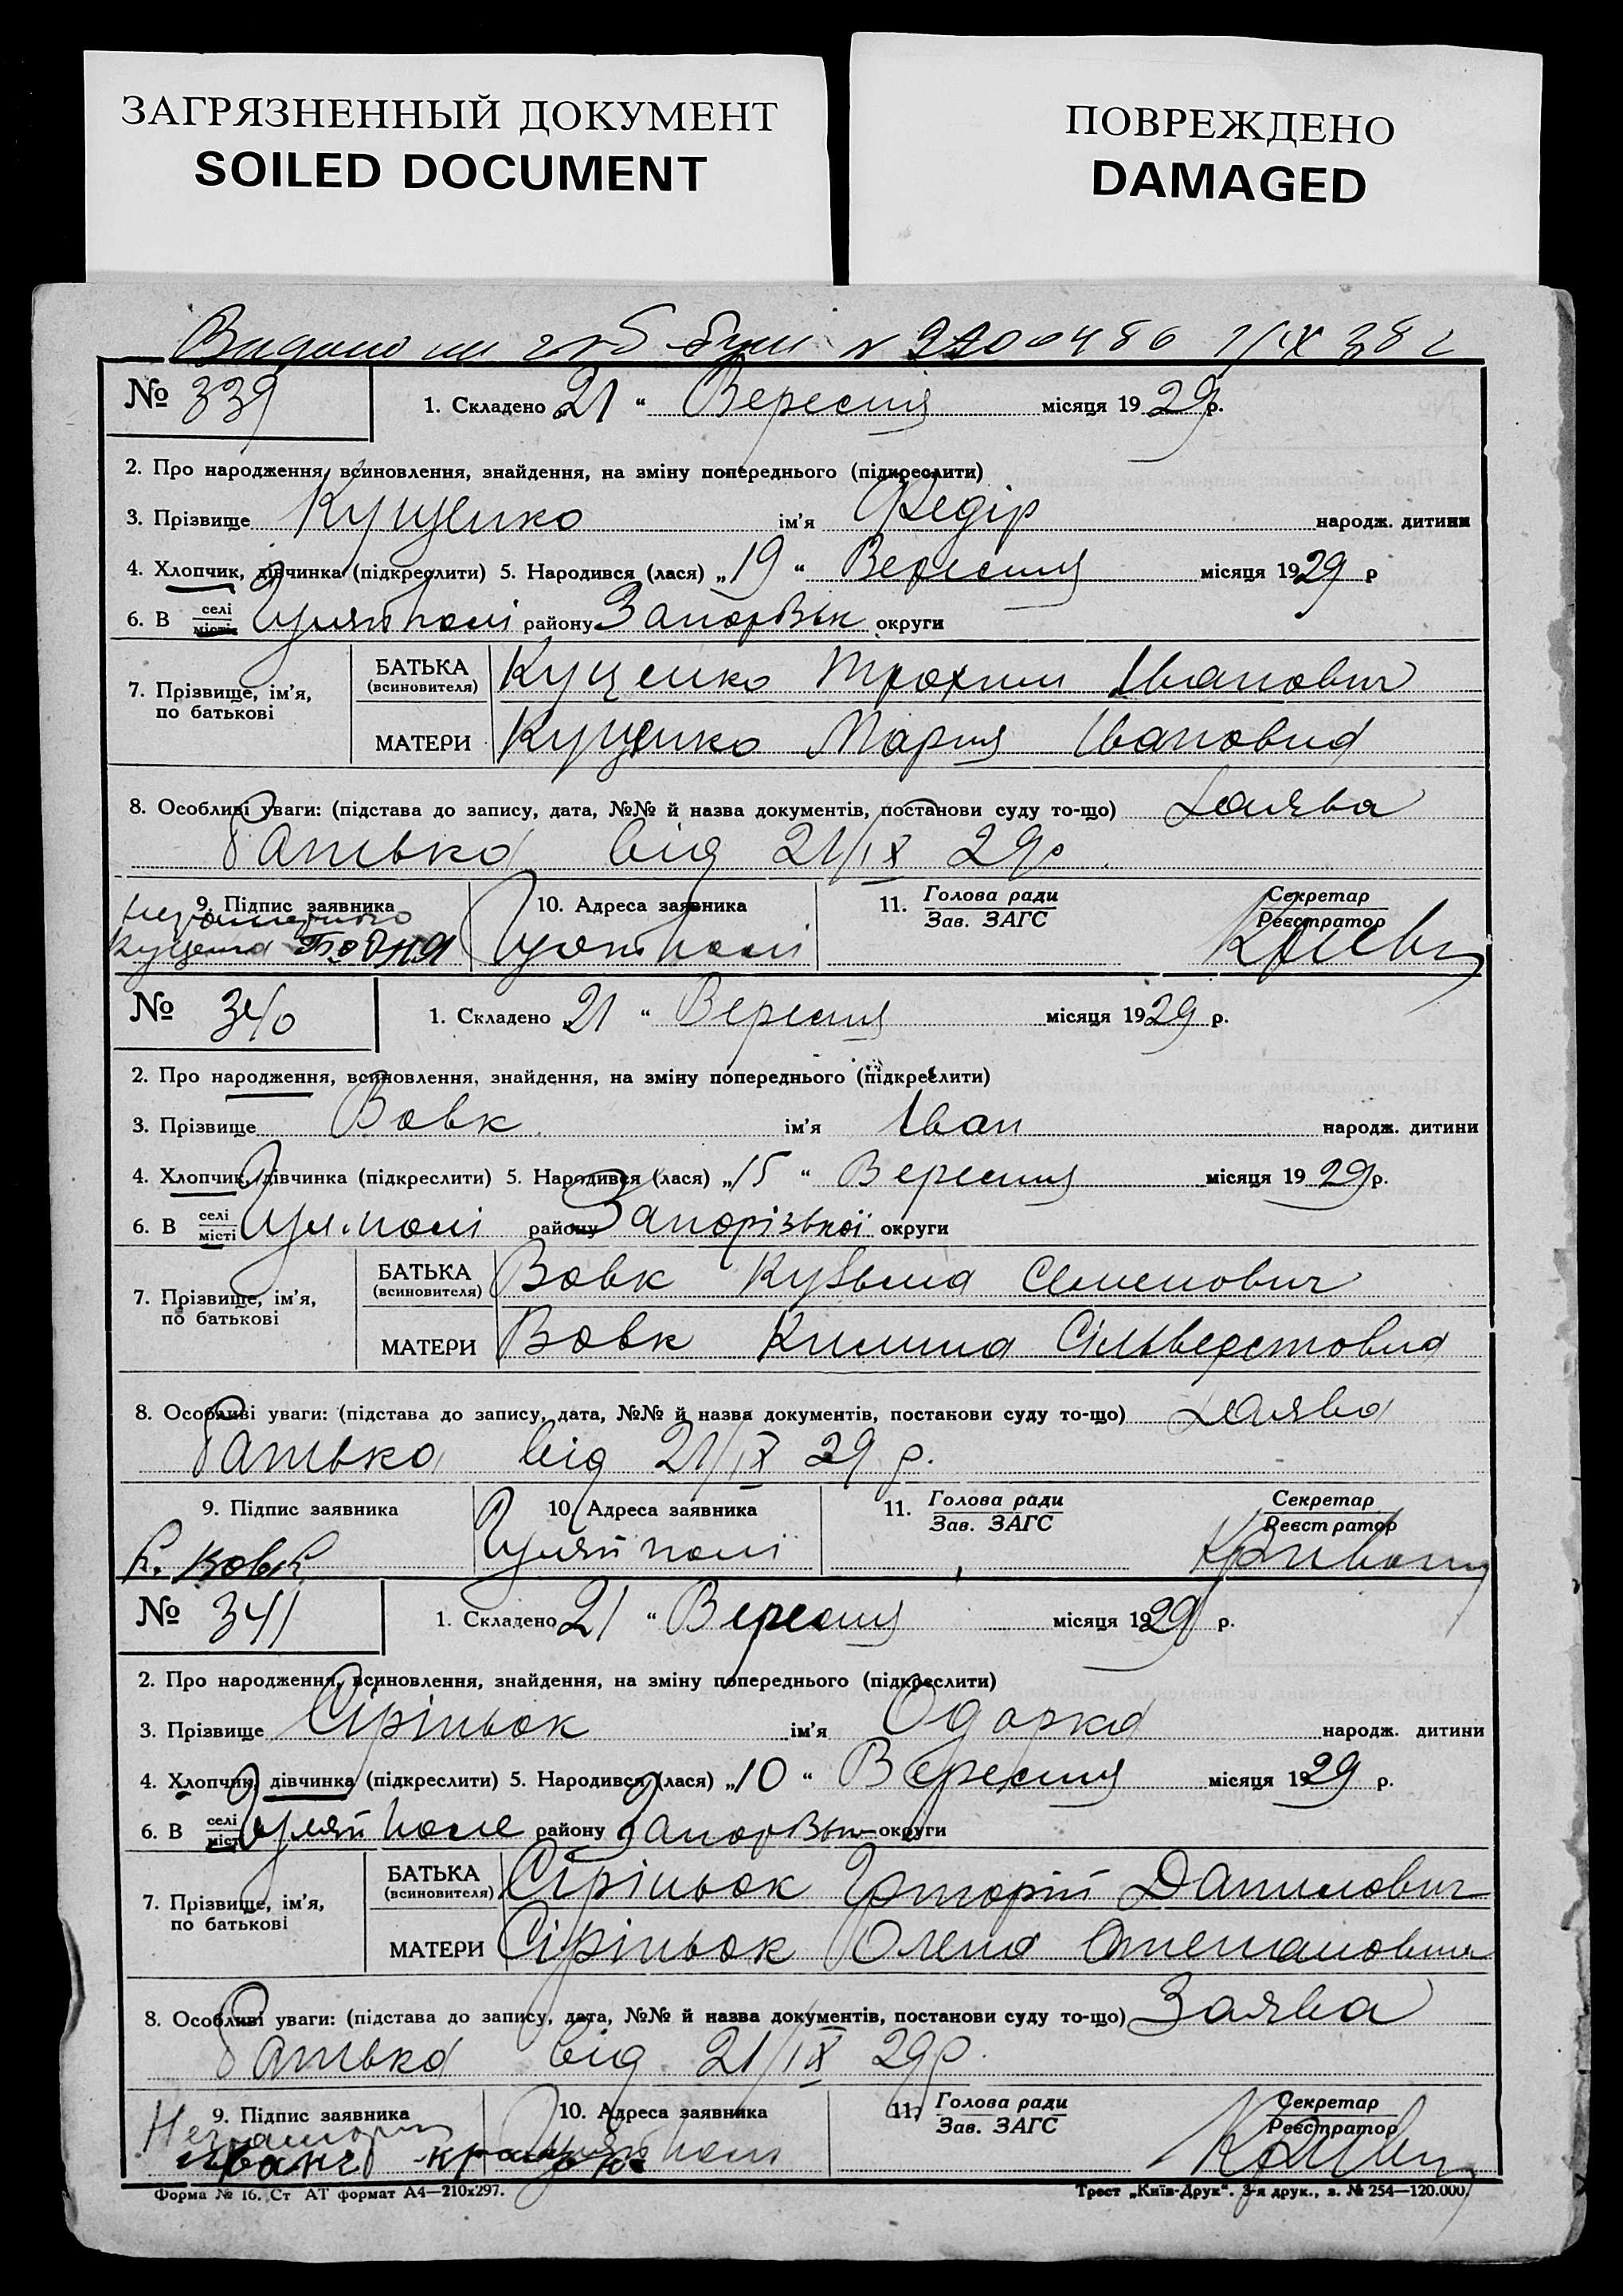 ЗАГРЯЗНЕННЫЙ ДОКУМЕНТ
SOILED DOCUMENT
ПОВРЕЖДЕНО
DAMAGED
Видано
№ 339 1. Складено „21“ Вересня місяця 1929р.
2. Про народження, всиновлення, знайдення, на зміну попереднього (підкреслити)
3. Прізвище Куценко ім’я Федір народж. дитини
4. Хлопчик, дівчинка (підкреслити) 5. Народився (лася) „19“ Вересня місяця 1929 р
6. В селі місті Гуляй Полі району Запорізьк округи
7. Прізвище, ім’я, по батькові
БАТЬКА (всиновителя) Куценко Трохим Іванович
МАТЕРИ Куценко Мария Івановна
8. Особливі уваги: (підстава до запису, дата, №№ й назва документів, постанови суду то-що) Заява
батька від 21/IX 29р.
9. Підпис заявника 10. Адреса заявника 11. Голова ради Зав. ЗАГС Секретар Реєстратор
Гуляй Полі
№ 340 1. Складено „21“ Вересня місяця 1929 р.
2. Про народження, всиновлення, знайдення, на зміну попереднього (підкреслити)
3. Прізвище Вовк ім’я Іван народж. дитини
4. Хлопчик, дівчинка (підкреслити) 5. Народився (лася) „15“ Вересня місяця 1929р.
6. В селі місті Гул.полі району Запорізької округи
7. Прізвище, ім’я, по батькові
БАТЬКА (всиновителя) Вовк Кузьма Семенович
МАТЕРИ Вовк Килина Сільверстовна
8. Особливі уваги: (підстава до запису, дата, №№ й назва документів, постанови суду то-що) Заява
батька від 21/IX 29 р.
9. Підпис заявника 10. Адреса заявника 11. Голова ради Зав. ЗАГС Секретар Реєстратор
К. Вовк Гуляй полі
№ 341 1. Складено „21“ Вересня місяця 1929 р.
2. Про народження, всиновлення, знайдення, на зміну попереднього (підкреслити)
3. Прізвище Сіріньок ім’я Одарка народж. дитини
4. Хлопчик, дівчинка (підкреслити) 5. Народився (лася) „10“ Вересня місяця 1929 р.
6. В селі місті Гуляй Поле району Запорізьк округи
7. Прізвище, ім’я, по батькові
БАТЬКА (всиновителя) Сіріньок Григорій Данилович
МАТЕРИ Сіріньок Олена Степановна
8. Особливі уваги: (підстава до запису, дата, №№ й назва документів, постанови суду то-що) Заява
батька від 21/IX 29р.
9. Підпис заявника 10. Адреса заявника 11. Голова ради Зав. ЗАГС Секретар Реєстратор
Гуляй Полі
Форма № 16. Ст АТ формат А4—210х297. Трест „Київ-Друк“. 3-я друк., з. № 254—120.000.